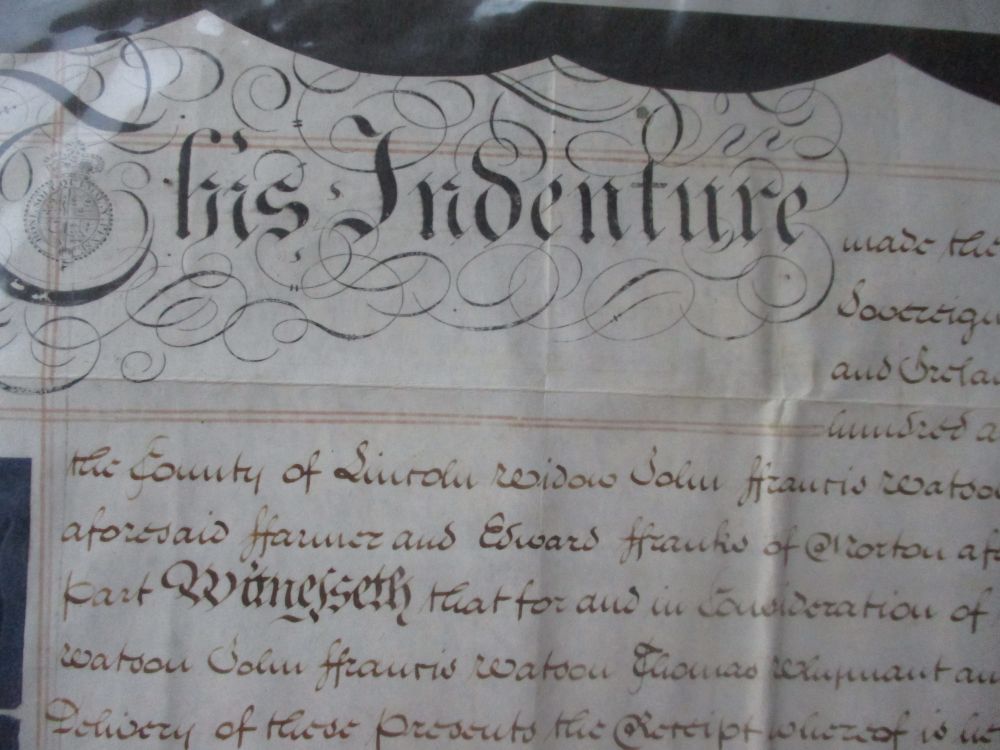 This Indenture
made the
Sovereign
and Irelan
hundred a
the County of Lincoln Widow John ffrancis Watson
aforesaid ffarmer and Edward ffranks of Morton afo
part Witnesseth that for and in Consideration of
Watson John ffrancis Watson Thomas Whymant an
Delivery of these Presents the Receipt whereof is he